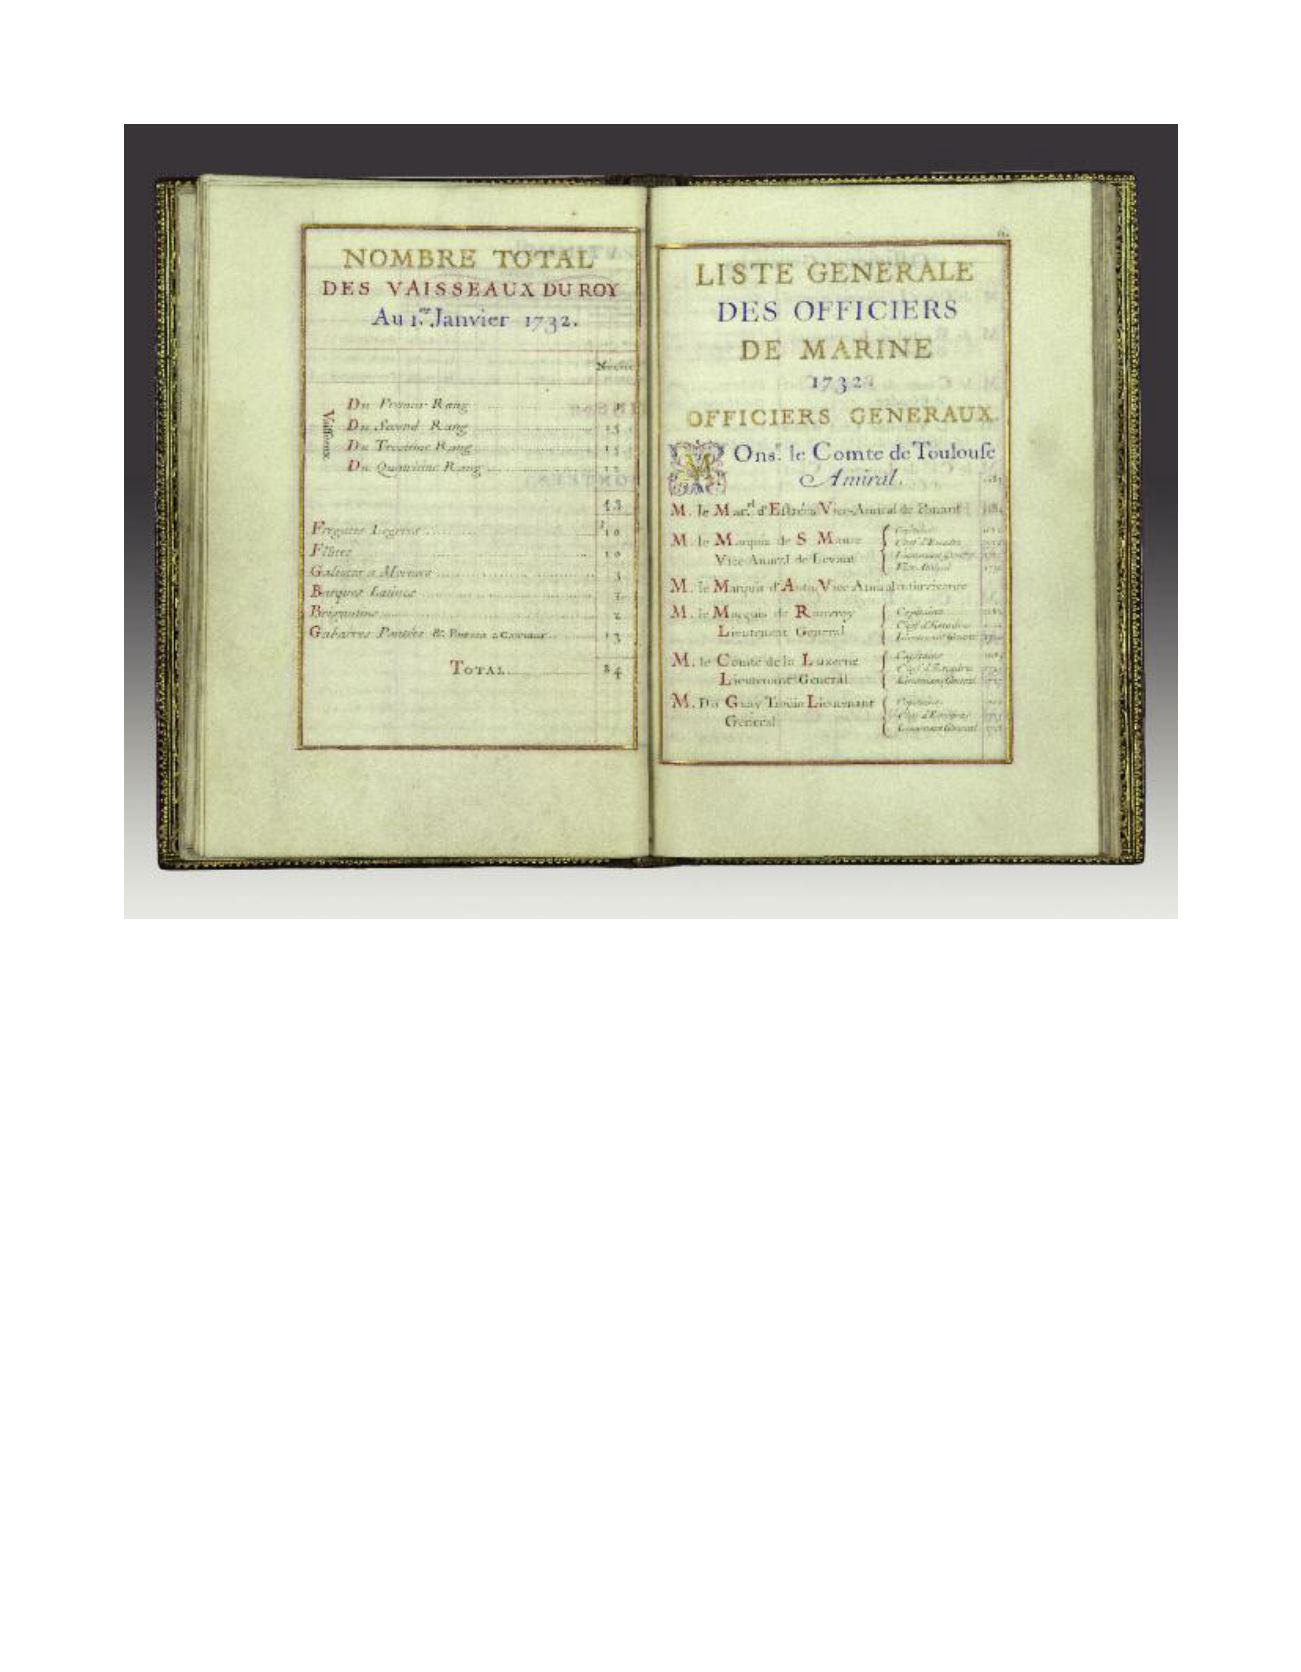 NOMBRE TOTAL
DES VAISSEAUX DU ROY
Au 1.er Janvier 1732.
Nombre
Vaisseaux
Du Premier Rang
Du Second Rang 15
Du Troisieme Rang 15
Du Quatrieme Rang 12
43
Fregates Legeres 10
Flûtes 10
Galiotes a Mortiers 3
Barques Latines
Brigantins 2
Gabarres Pontées & 13
TOTAL 84
LISTE GENERALE
DES OFFICIERS
DE MARINE
1732
OFFICIERS GENERAUX.
MOns.r le Comte de Toulouse
Amiral.
M. le Mar.al d'Estrées Vice-Amiral de Ponant
M. le Marquis de S Maure
Vice Amiral de Levant
Capitaine
Chef d'Escadre
Lieutenant General
Vice Amiral
M. le Marquis d'Antin Vice Amiral
M. le Marquis de
Lieutenant General
Capitaine
Chef d'Escadre
Lieutenant General
M. le Comte de la Luzerne
Lieutenant General
Capitaine
Chef d'Escadre
Lieutenant General
M. Du Guay Troüin Lieutenant
General
Capitaine
Chef d'Escadre
Lieutenant General